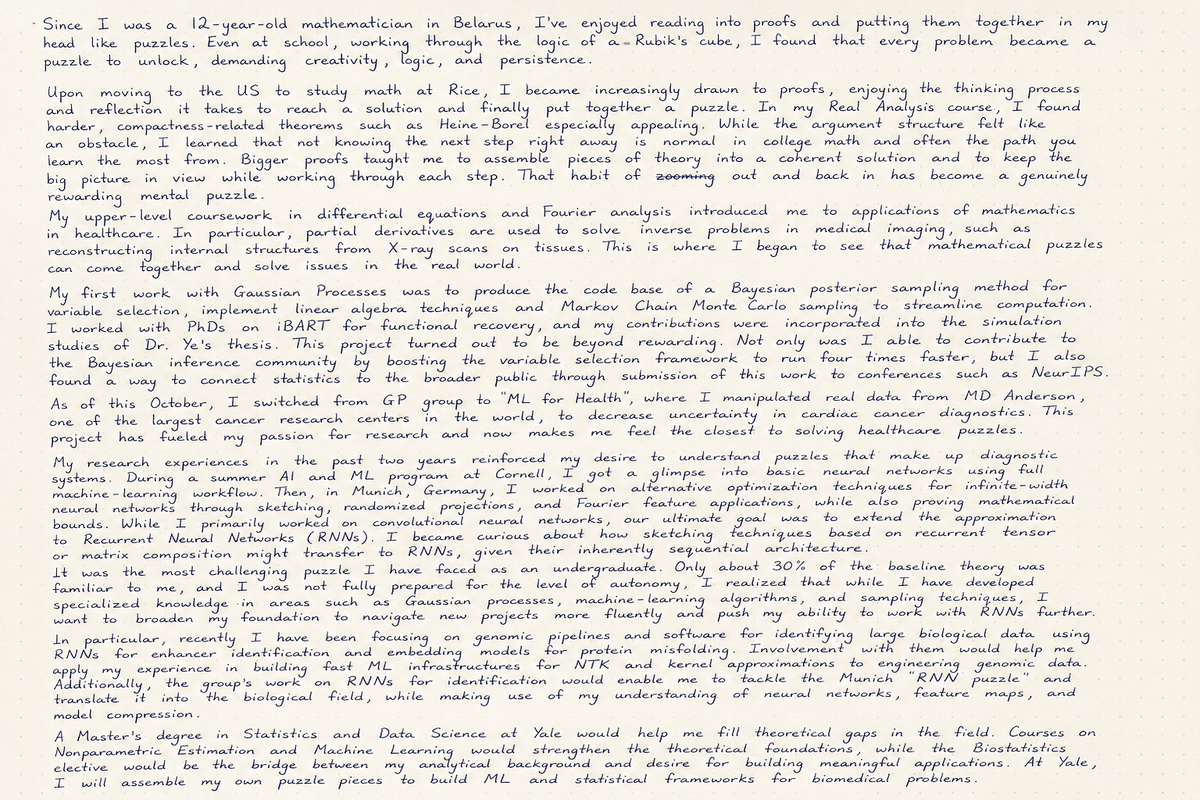 Since I was a 12-year-old mathematician in Belarus, I've enjoyed reading into proofs and putting them together in my
head like puzzles. Even at school, working through the logic of a Rubik's cube, I found that every problem became a
puzzle to unlock, demanding creativity, logic, and persistence.
Upon moving to the US to study math at Rice, I became increasingly drawn to proofs, enjoying the thinking process
and reflection it takes to reach a solution and finally put together a puzzle. In my Real Analysis course, I found
harder, compactness-related theorems such as Heine-Borel especially appealing. While the argument structure felt like
an obstacle, I learned that not knowing the next step right away is normal in college math and often the path you
learn the most from. Bigger proofs taught me to assemble pieces of theory into a coherent solution and to keep the
big picture in view while working through each step. That habit of zooming out and back in has become a genuinely
rewarding mental puzzle.
My upper-level coursework in differential equations and Fourier analysis introduced me to applications of mathematics
in healthcare. In particular, partial derivatives are used to solve inverse problems in medical imaging, such as
reconstructing internal structures from X-ray scans on tissues. This is where I began to see that mathematical puzzles
can come together and solve issues in the real world.
My first work with Gaussian Processes was to produce the code base of a Bayesian posterior sampling method for
variable selection, implement linear algebra techniques and Markov Chain Monte Carlo sampling to streamline computation.
I worked with PhDs on iBART for functional recovery, and my contributions were incorporated into the simulation
studies of Dr. Ye's thesis. This project turned out to be beyond rewarding. Not only was I able to contribute to
the Bayesian inference community by boosting the variable selection framework to run four times faster, but I also
found a way to connect statistics to the broader public through submission of this work to conferences such as NeurIPS.
As of this October, I switched from GP group to "ML for Health", where I manipulated real data from MD Anderson,
one of the largest cancer research centers in the world, to decrease uncertainty in cardiac cancer diagnostics. This
project has fueled my passion for research and now makes me feel the closest to solving healthcare puzzles.
My research experiences in the past two years reinforced my desire to understand puzzles that make up diagnostic
systems. During a summer AI and ML program at Cornell, I got a glimpse into basic neural networks using full
machine-learning workflow. Then, in Munich, Germany, I worked on alternative optimization techniques for infinite-width
neural networks through sketching, randomized projections, and Fourier feature applications, while also proving mathematical
bounds. While I primarily worked on convolutional neural networks, our ultimate goal was to extend the approximation
to Recurrent Neural Networks (RNNs). I became curious about how sketching techniques based on recurrent tensor
or matrix composition might transfer to RNNs, given their inherently sequential architecture.
It was the most challenging puzzle I have faced as an undergraduate. Only about 30% of the baseline theory was
familiar to me, and I was not fully prepared for the level of autonomy, I realized that while I have developed
specialized knowledge in areas such as Gaussian processes, machine-learning algorithms, and sampling techniques, I
want to broaden my foundation to navigate new projects more fluently and push my ability to work with RNNs further.
In particular, recently I have been focusing on genomic pipelines and software for identifying large biological data using
RNNs for enhancer identification and embedding models for protein misfolding. Involvement with them would help me
apply my experience in building fast ML infrastructures for NTK and kernel approximations to engineering genomic data.
Additionally, the group's work on RNNs for identification would enable me to tackle the Munich "RNN puzzle" and
translate it into the biological field, while making use of my understanding of neural networks, feature maps, and
model compression.
A Master's degree in Statistics and Data Science at Yale would help me fill theoretical gaps in the field. Courses on
Nonparametric Estimation and Machine Learning would strengthen the theoretical foundations, while the Biostatistics
elective would be the bridge between my analytical background and desire for building meaningful applications. At Yale,
I will assemble my own puzzle pieces to build ML and statistical frameworks for biomedical problems.